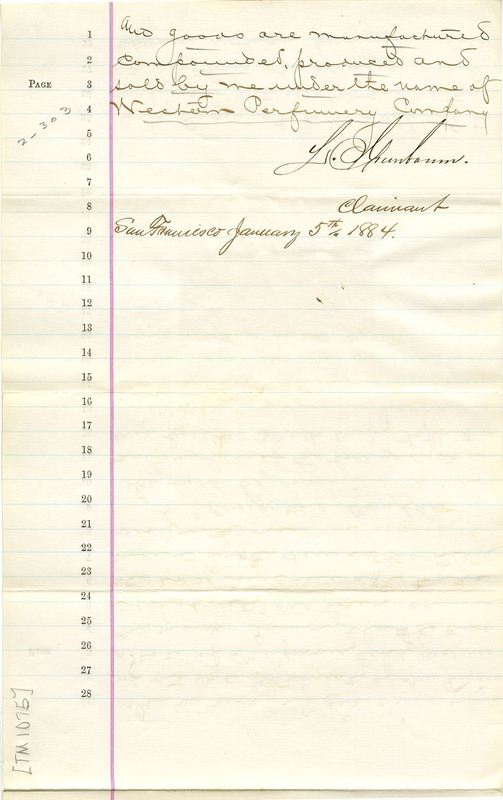 1 And goods are manufactured
2 compounded, produced and
PAGE 3 sold by me under the name of
4 Western Perfumery Company
2-303
5
6 L.
7
8 Claimant
9 San Francisco January 5th 1884.
10
11
12
13
14
15
16
17
18
19
20
21
22
23
24
25
26
27
28
[TM1075]